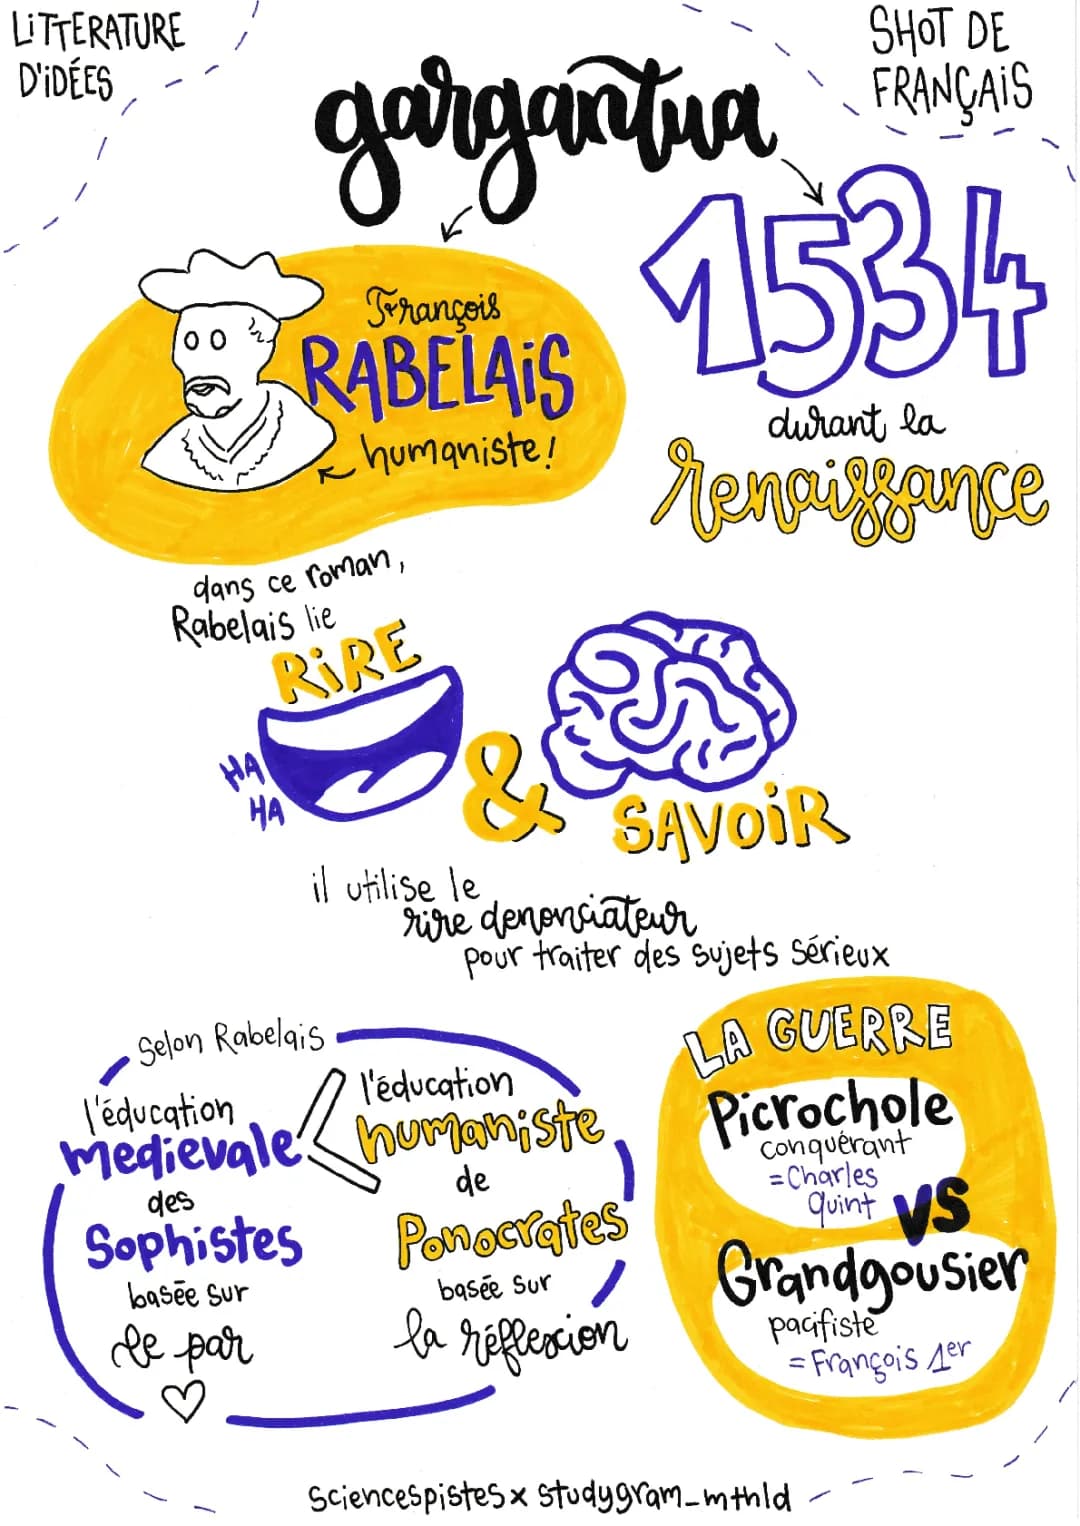 LiTTERATURE
D'iDÉES
SHOT DE
FRANÇAiS
gargantua
1534
durant la
renaissance
François
RABELAiS
humaniste!
dans ce roman,
Rabelais lie
RiRE
HA
HA
&
SAVOiR
il utilise le
rire denonciateur
pour traiter des sujets sérieux
Selon Rabelais
l'éducation
medievale
des
Sophistes
basée sur
le par
♡
<
l'éducation
humaniste
de
Ponocrates
basée sur
la réflexion
LA GUERRE
Picrochole
conquérant
=Charles
quint
VS
Grandgousier
pacifiste
=François 1er
sciencespistes x studygram_mthld